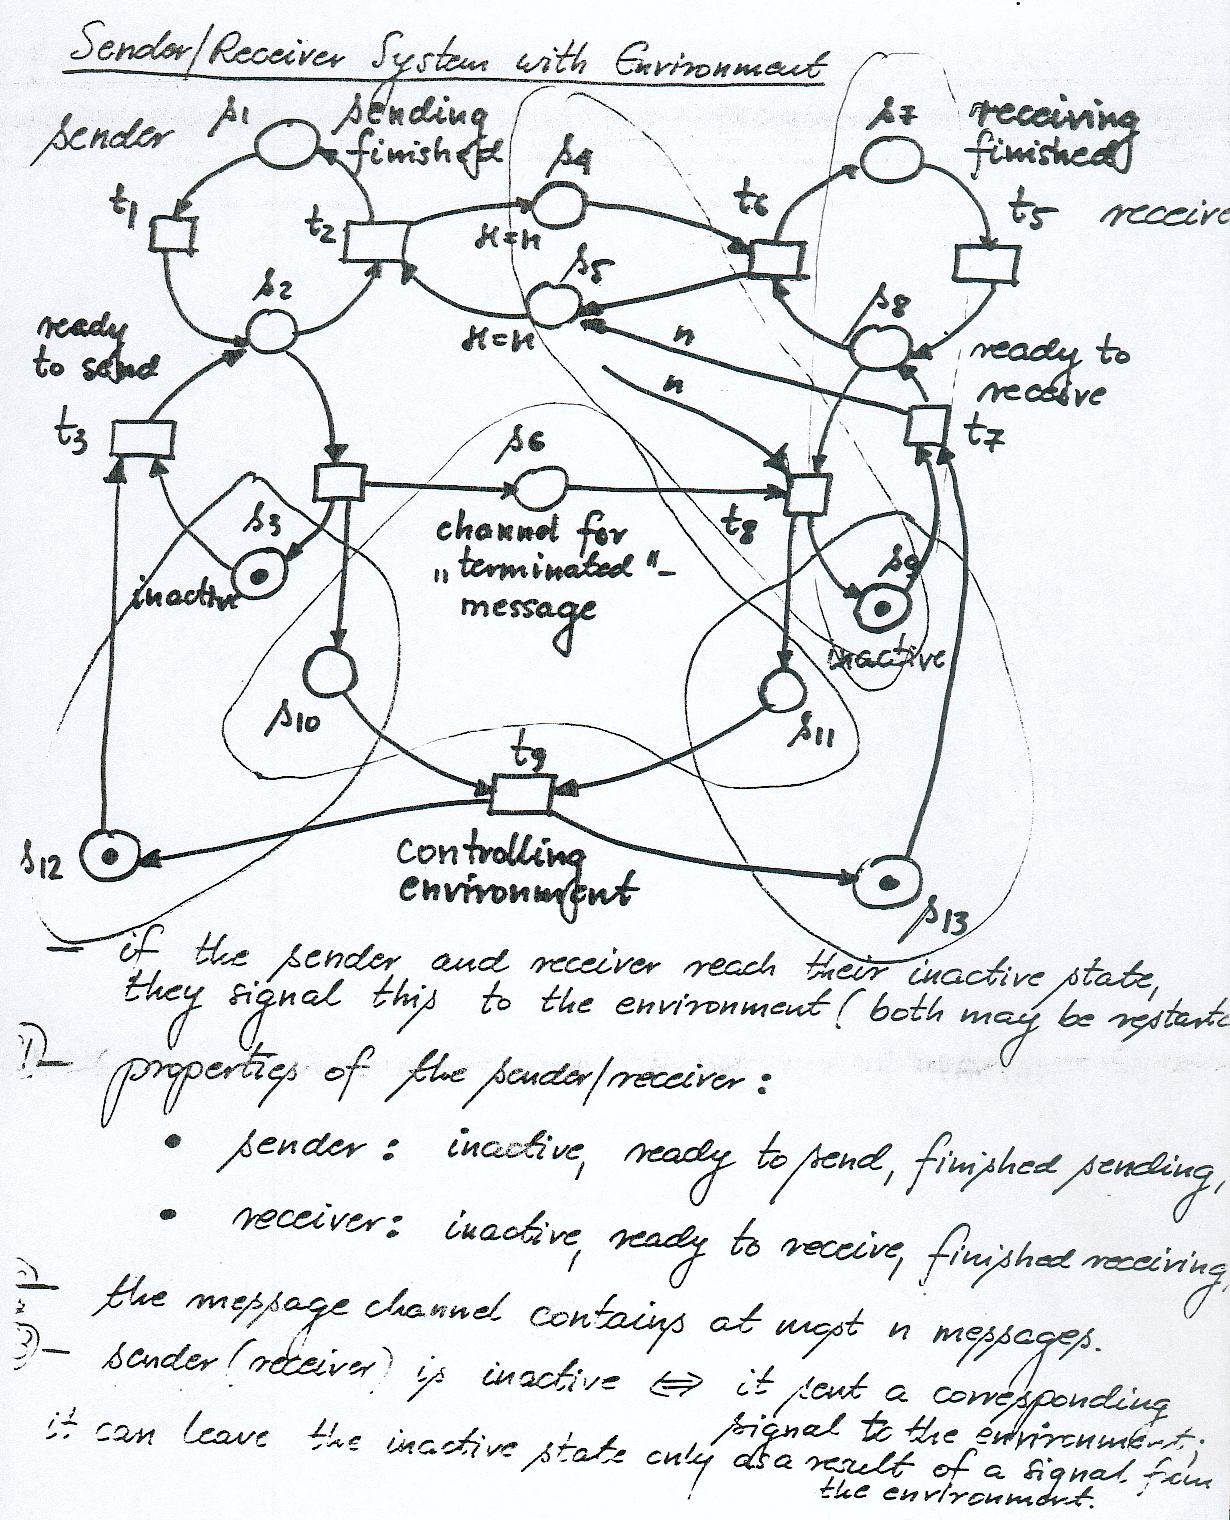 Sender/Receiver System with Environment
sender
s1
sending
finished
s4
s7
receiving
finished
t1
t2
x=n
t6
t5
receive
s2
s5
s8
ready
to send
x=n
n
ready to
receive
n
t3
s6
t7
s3
channel for
„terminated"-
message
t8
s9
inactive
inactive
s10
s11
t9
s12
controlling
environment
s13
— if the sender and receiver reach their inactive state,
they signal this to the environment (both may be restarte
1)— properties of the sender/receiver:
• sender: inactive, ready to send, finished sending,
• receiver: inactive, ready to receive, finished receiving,
— the message channel contains at most n messages.
— sender (receiver) is inactive ⇔ it sent a corresponding
signal to the environment;
it can leave the inactive state only as a result of a signal from
the environment.